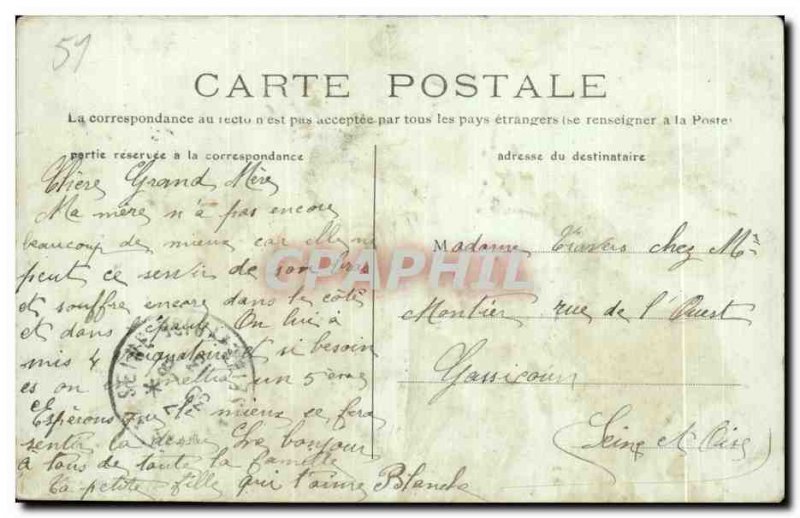 51
CARTE POSTALE
La correspondance au recto n'est pas acceptée par tous les pays étrangers (se renseigner à la Poste)
partie réservée à la correspondance
adresse du destinataire
Chère Grand Mère
Ma mère n'a pas encore
beaucoup de mieux car elle ne
peut ce sentir de son bras
et souffre encore dans le coté
et dans l'épaule On lui à
mis 4 et si besoin
es on mettra un 5ème
Espérons que le mieux ce fera
sentir la Le bonjour
à tous de toute la famille
Ta petite fille qui t'aime Blanche
Madame Travers chez Mr
Montier rue de l'Ouest
Gassicourt
Seine et Oise
SEINE
CPAPHIL